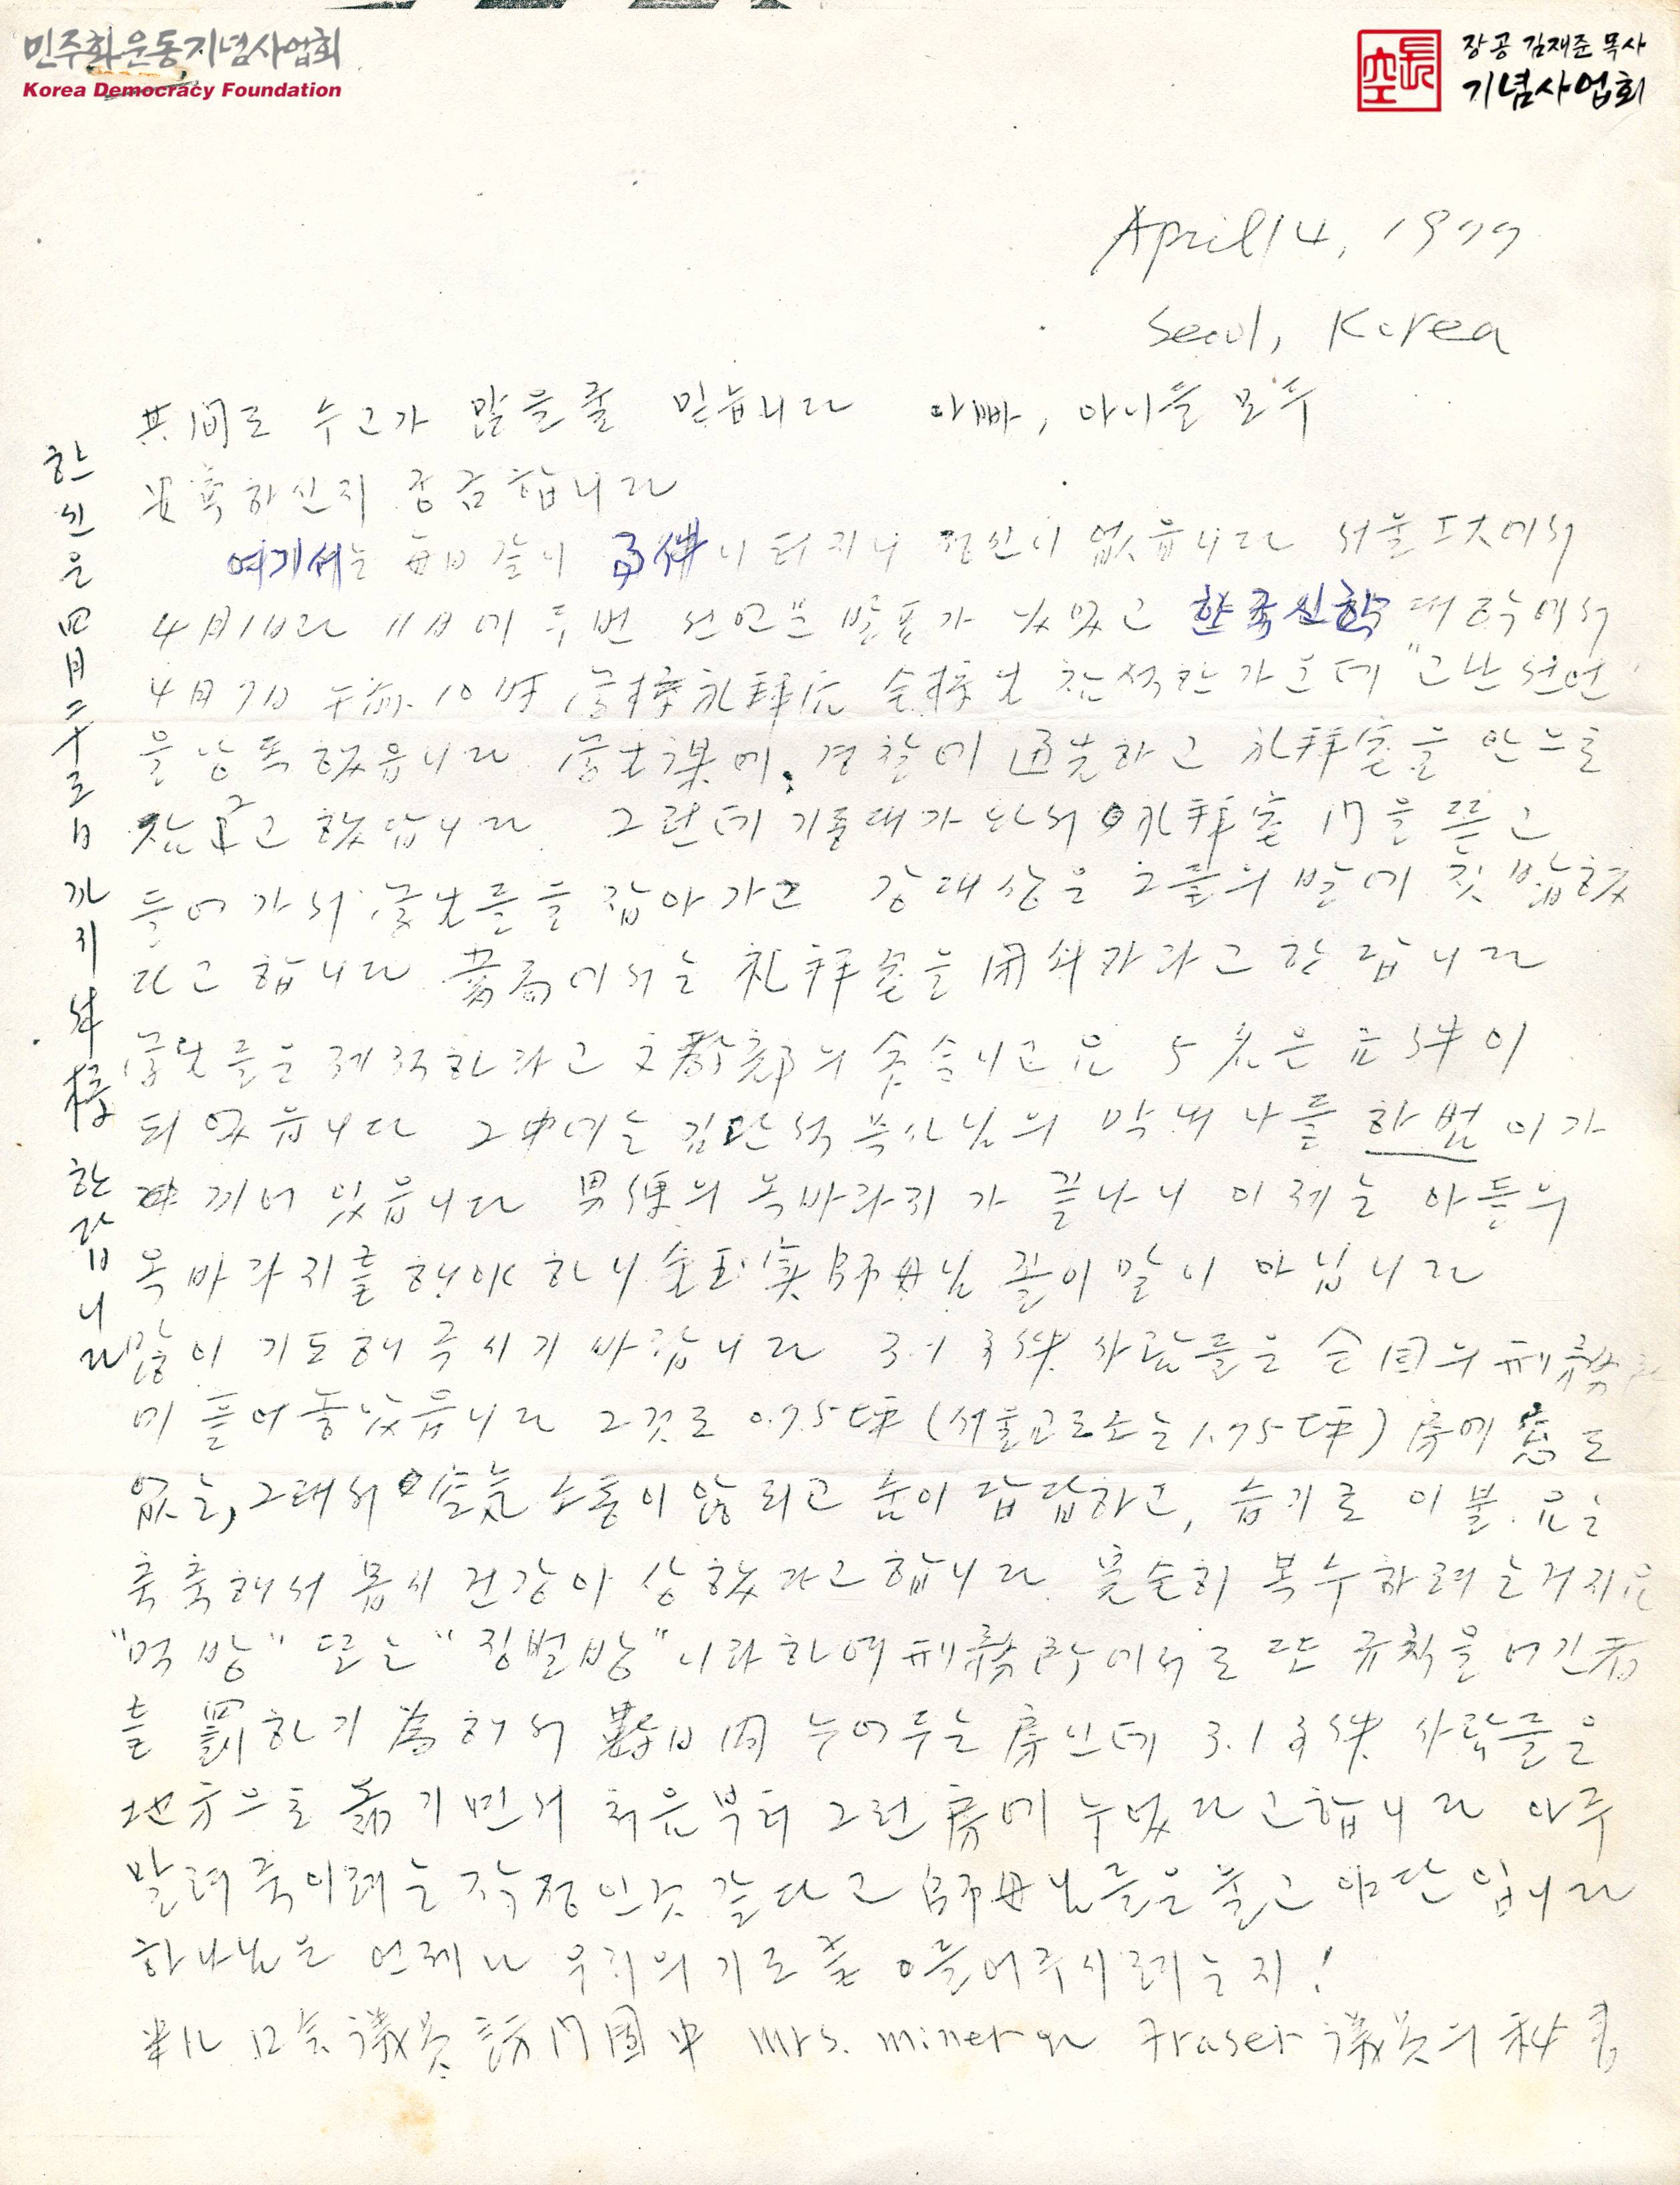 민주화운동기념사업회
Korea Democracy Foundation
長空
장공 김재준 목사
기념사업회
April 14, 1977
Seoul, Korea
其間도 수고가 많을줄 믿습니다 아빠, 아이들 모두
安寧하신지 궁금합니다
여기서는 每日 같이 事件이 터지니 정신이 없읍니다 서울 工大에서
4月 11日에 두번 선언문 발표가 있었고 한국신학 대학에서
4月 7日 午前 10時 學校礼拜后 全校生 참석한 가운데 "고난선언
을 낭독했읍니다 學生課에, 경찰에 通告하고 礼拜室을 안으로
잠그고 했답니다 그런데 기동대가 와서 礼拜室 門을 뜯고
들어가서 學生들을 잡아가고 강대상은 그들의 발에 짓밟혔
다고 합니다 當局에서는 礼拜室을 閉쇄하라고 한답니다
學生들을 제적하라고 文敎部의 命令이고요 5名은 立件이
되었읍니다 그中에는 김관석 목사님의 막내아들 하범이가
끼어 있읍니다 男便의 옥바라지가 끝나니 이제는 아들의
옥바라지를 해야하니 金玉實師母님 꼴이 말이 아닙니다
많이 기도해 주시기 바랍니다 3.1 事件 사람들은 全国의 刑務所
에 흩어놓았읍니다 그것도 0.75坪 (서울교도소는 1.75坪) 房에 窓도
없는, 그래서 空氣 소통이 않되고 숨이 답답하고, 습기로 이불 요는
축축해서 몹시 건강이 상했다고 합니다 完全히 복수하려는거지요
"먹방" 또는 "징벌방"이라 하여 刑務所에서도 또 규칙을 어긴者
를 罰하기 爲해서 數日間 누어두는 房인데 3.1事件 사람들은
地方으로 옮기면서 처음부터 그런房에 누었다고합니다 아주
말려죽이려는 작정인것 같다고 師母님들은 울고 야단입니다
하나님은 언제나 우리의 기도를 들어주시려는지!
半月 国会議員 訪問團中 Mrs. Miner 와 Fraser 議員의 秘書
한신은 四月二十五日까지 休校한답니다